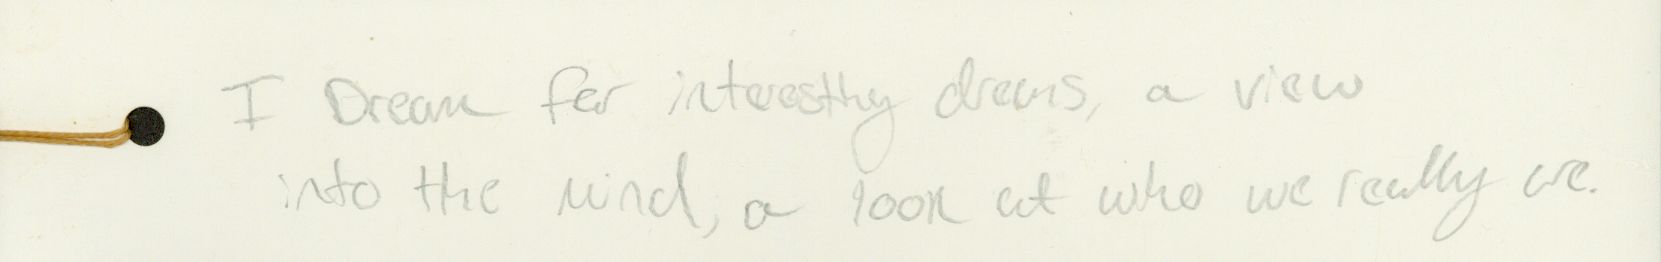 I Dream for interesting dreams, a view
into the mind, a look at who we really are.